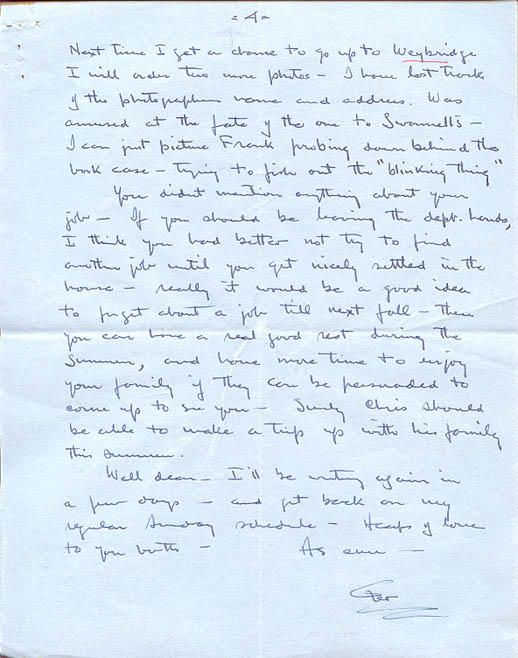 - 4 -
Next time I get a chance to go up to Weybridge
I will order two more photos - I have lost track
of the photographers name and address. Was
amused at the fate of the one to Swannell's -
I can just picture Frank probing down behind the
book case - trying to fish out the "blinking thing"
You didn't mention anything about your
job - If you should be leaving the dept. hands,
I think you had better not try to find
another job until you get nicely settled in the
house - really it would be a good idea
to forget about a job till next fall - then
you can have a real good rest during the
summer, and have more time to enjoy
your family if they can be persuaded to
come up to see you - Surely Chris should
be able to make a trip up with his family
this summer.
Well dear - I'll be writing again in
a few days - and get back on my
regular Sunday schedule - Heaps of love
to you both - As ever -